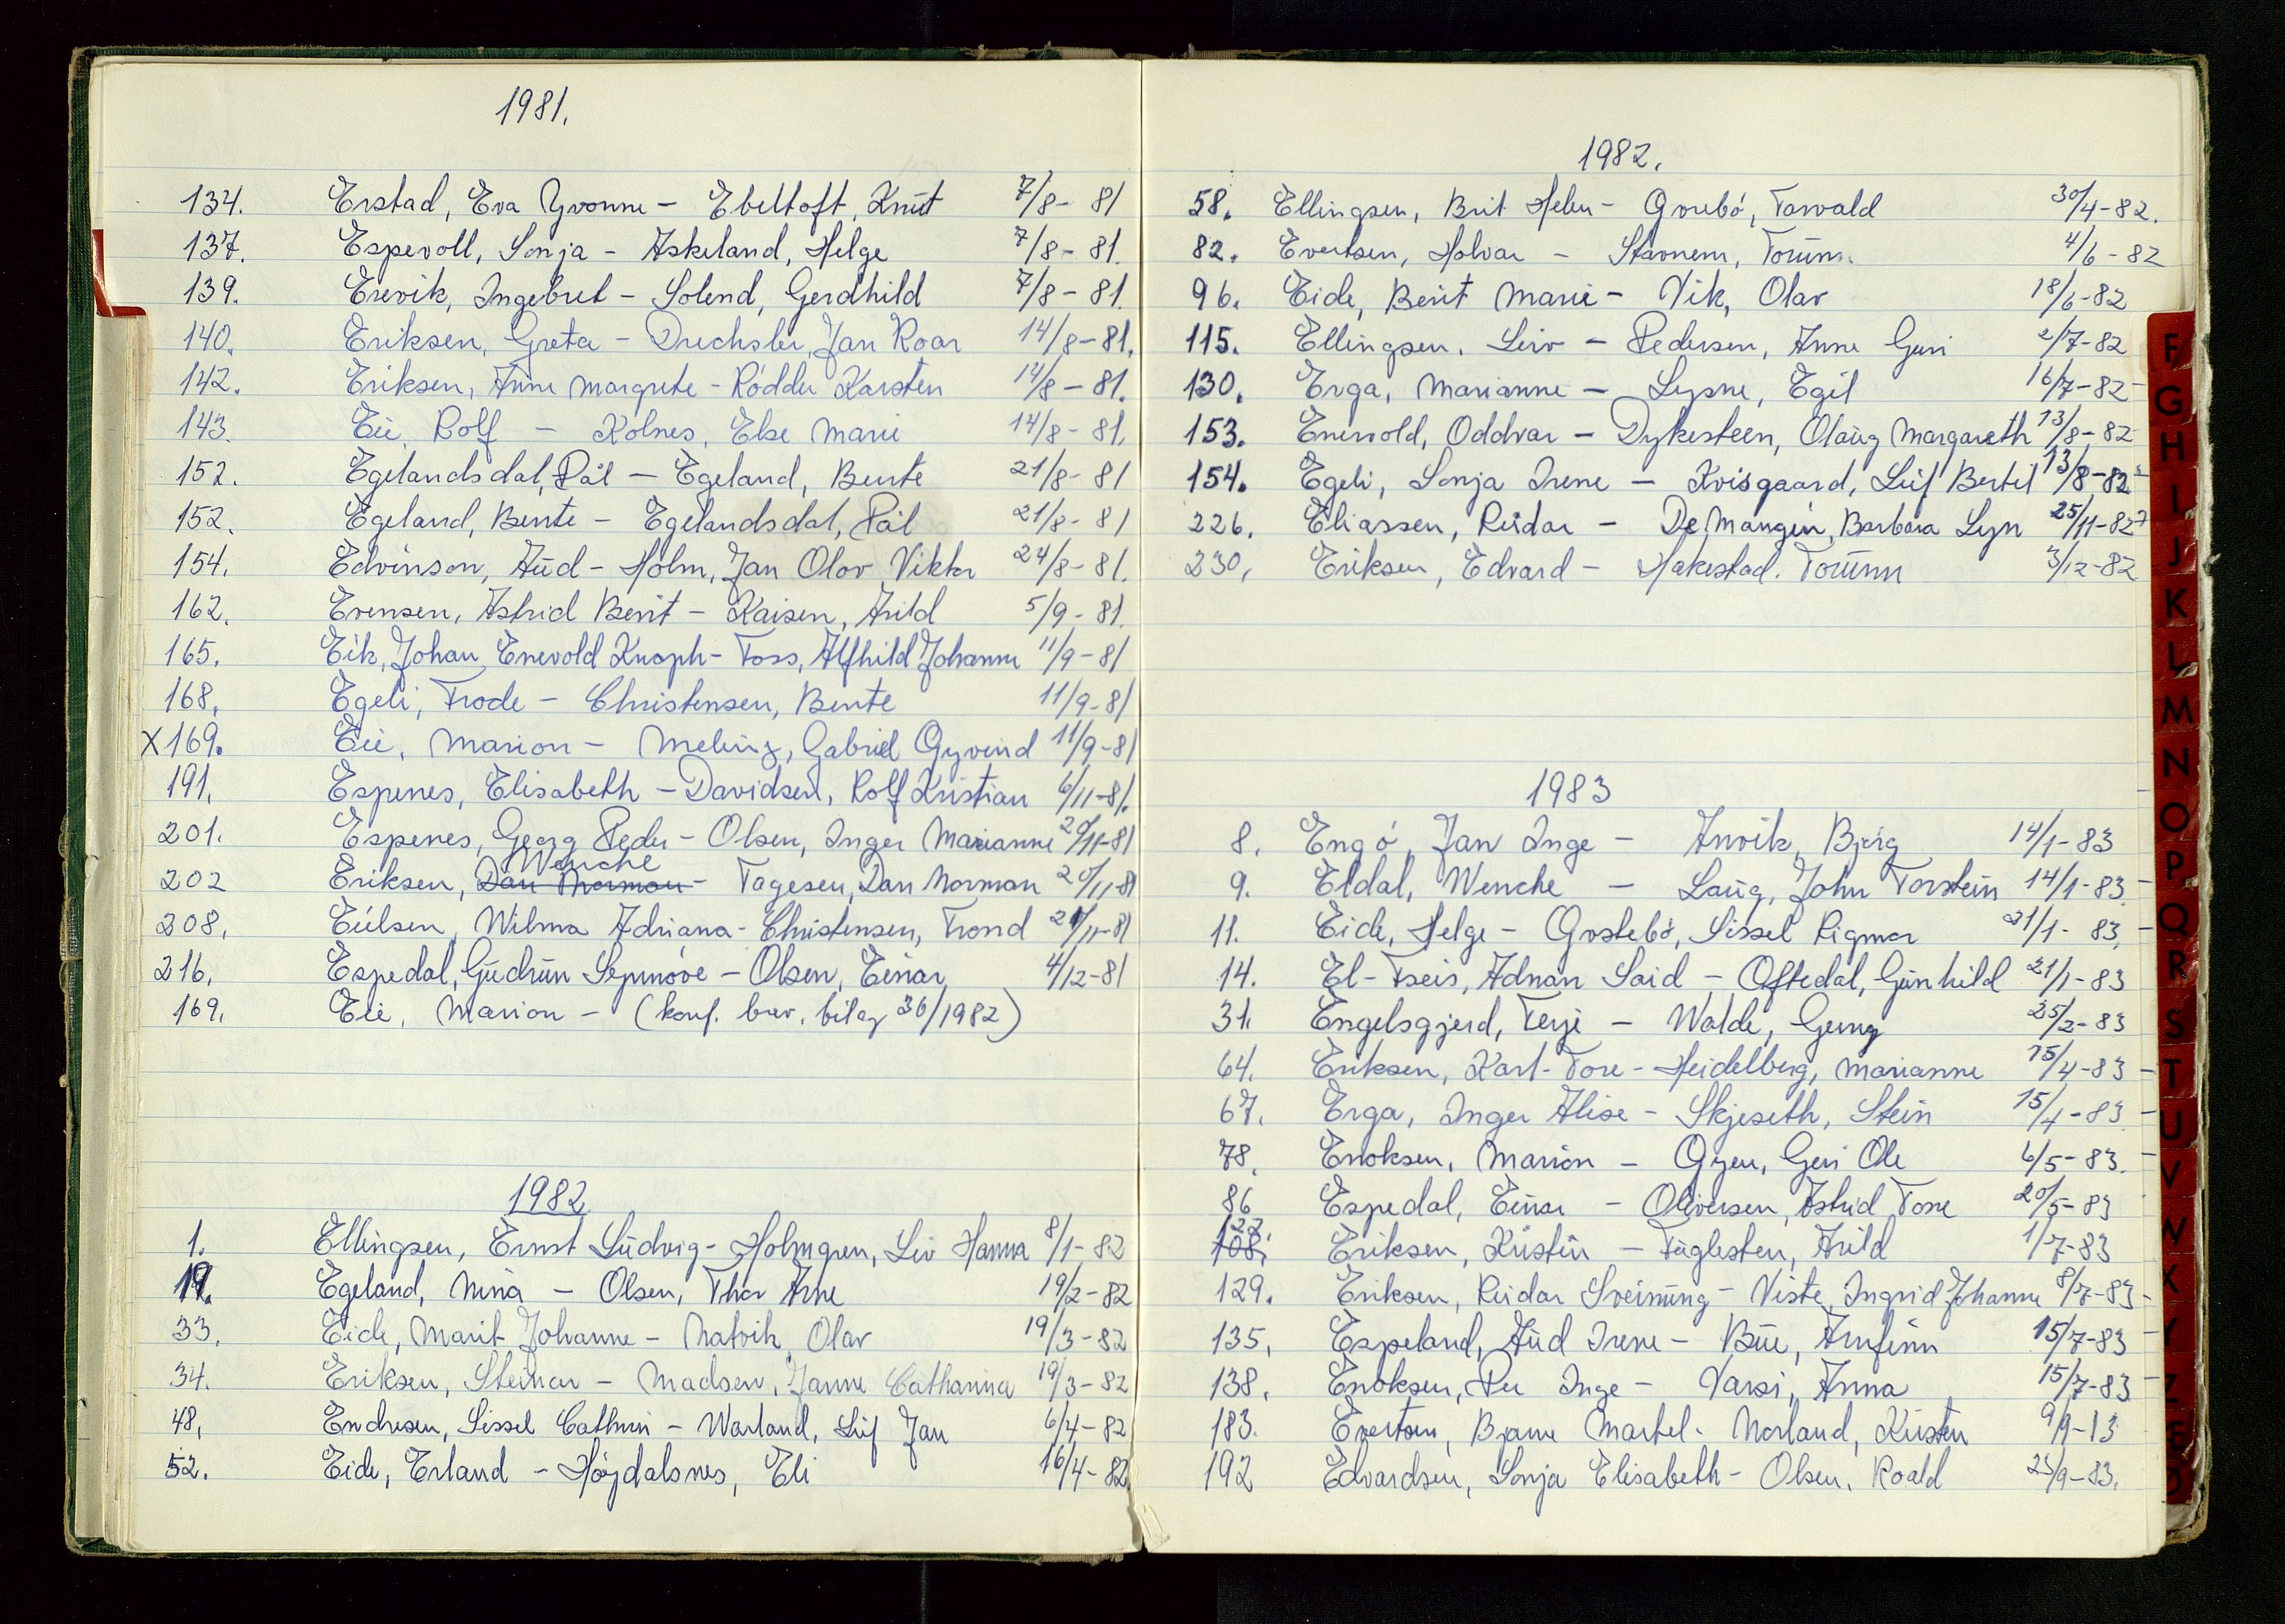 1981.
134. Erstad, Eva Yvonne - Ebeltoft, Knut 7/8 - 81
137. Espevoll, Sonja - Askeland, Helge 7/8 - 81.
139. Erevik, Ingebret - Solend, Gerdhild 7/8 - 81.
140. Eriksen, Greta - Drechsler, Jan Roar 14/8 - 81.
142. Eriksen, Anne Margrete - Rødder Karsten 14/8 - 81.
143. Eie, Rolf - Kolnes, Else Marie 14/8 - 81.
152. Egelandsdal, Pål - Egeland, Bente 21/8 - 81
152. Egeland, Bente - Egelandsdal, Pål 21/8 - 81
154. Edvinson, Aud - Holm, Jan Olov Viktor 24/8 - 81.
162. Evensen, Astrid Berit - Kaisen, Arild 5/9 - 81.
165. Eik, Johan Enevold Knoph - Foss, Alfhild Johanne 11/9 - 81
168. Egeli, Frode - Christensen, Bente 11/9 - 81
X 169. Eie, Marion - Meling, Gabriel Øyvind 11/9 - 81
191. Espenes, Elisabeth - Davidsen, Rolf Kristian 6/11 - 81.
201. Espenes, Georg Peder - Olsen, Inger Marianne 20/11 - 81
Wenche
202 Eriksen, Dan Norman - Fagesen, Dan Norman 20/11 - 81
208. Eulsen, Wilma Adriana - Christensen, Trond /11 - 81
216. Espedal, Gudrun Synnøve - Olsen, Einar 4/12 - 81
169. Eie, Marion - (konf. brev. bilag 36/1982)
1982
1. Ellingsen, Ernst Ludvig - Holmgren, Liv Hanna 8/1 - 82
19. Egeland, Nina - Olsen, Thor Arne 19/2 - 82
33. Eide, Marit Johanne - Natvik, Olav 19/3 - 82
34. Eriksen, Steinar - Madsen, Janne Catharina 19/3 - 82
48. Endresen, Sissel Cathrin - Warland, Leif Jan 6/4 - 82
52. Eide, Erland - Høydalsnes, Eli 16/4 - 82
1982.
58. Ellingsen, Brit Helen - Orrebø, Torvald 30/4 - 82.
82. Evertsen, Holvar - Stavnem, Torunn. 4/6 - 82
96. Eide, Berit Marie - Vik, Olav 18/6 - 82
115. Ellingsen, Leiv - Pedersen, Anne Guri 2/7 - 82
130. Erga, Marianne - Lysne, Egil 16/7 - 82
153. Enevold, Oddvar - Dykesteen, Olaug Margareth 13/8 - 82
154. Egeli, Sonja Irene - Kvisgaard, Leif Bertil 13/8 - 82
226. Eliassen, Reidar - De Mangin, Barbara Lyn 25/11 - 82
230. Eriksen, Edvard - Hakestad. Torunn 3/12 - 82
1983
8. Engø, Jan Inge - Anvik, Bjørg 14/1 - 83
9. Eldal, Wenche - Laug, John Torstein 14/1 - 83
11. Eide, Helge - Orstebø, Sissel Rigmor 21/1 - 83.
14. El-Tseis, Adnan Said - Oftedal, Gunhild 21/1 - 83
31. Engelsgjerd, Terje - Walde, Gerny 25/2 - 83
64. Eriksen, Karl-Tore - Heidelberg, Marianne 15/4 - 83
67. Erga, Inger Alise - Skjeseth, Stein 15/4 - 83
78. Enoksen, Marion - Øyen, Geir Ole 6/5 - 83.
86 Espedal, Einar - Oliversen, Astrid Tove 20/5 - 83
122.
108. Eriksen, Kristin - Fuglesten, Arild 1/7 - 83
129. Eriksen, Reidar Sveinung - Viste, Ingrid Johanne 8/7 - 83
135. Espeland, Aud Irene - Bue, Arnfinn 15/7 - 83
138. Enoksen, Per Inge - Varsi, Anna 15/7 - 83
183. Evertsen, Bjarne Martel - Norland, Kirsten 9/9 - 13
192 Edvardsen, Sonja Elisabeth - Olsen, Roald 23/9 - 83.
F
G
H
I
J
K
L
M
N
O
P
Q
R
S
T
U
V
W
X
Y
Z
Æ
Ø